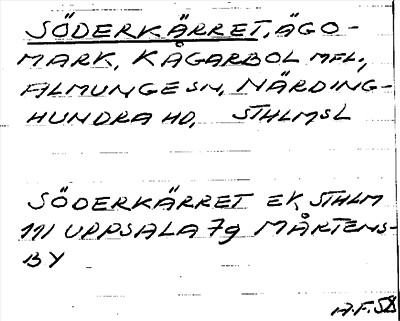 SÖDERKÄRRET, ÄGO-
MARK, KÅGARBOL MFL.,
ALMUNGE SN, NÄRDING-
HUNDRA HD, STHLMSL
SÖDERKÄRRET EK STHLM
111 UPPSALA 7g MÅRTENS-
BY
A.F. 58